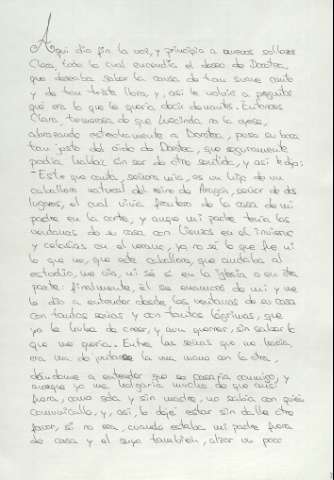 Aqui dio fin la voz, y principio a nuevos sollozos
Clara, todo lo cual encendía el deseo de Dorotea,
que deseaba saber la causa de tan suave canto
y de tan triste lloro, y así le volvió a preguntar
qué era lo que le quería decir denantes. Entonces
Clara, temerosa de que Luscinda no la oyese,
abrazando estrechamente a Dorotea, puso su boca
tan junto del oído de Dorotea, que seguramente
podía hablar sin ser de otro sentida, y así le dijo:
- Este que canta, señora mía, es un hijo de un
caballero natural del reino de Aragón, señor de dos
lugares, el cual vivía frontero de la casa de mi
padre en la corte, y aunque mi padre tenía las
ventanas de su casa con lienzos en el invierno
y celosías en el verano, yo no sé lo que fue, ni
lo que no, que este caballero, que andaba al
estudio, me vio, ni sé si en la iglesia o en otra
parte: finalmente, él se enamoró de mí y me
lo dio a entender desde las ventanas de su casa
con tantas señas y con tantas lágrimas, que
yo le hube de creer, y aun querer, sin saber lo
que me quería. Entre las señas que me hacía,
era una de juntarse la una mano con la otra,
dándome a entender que se casaría conmigo, y
aunque yo me holgaría mucho de que así
fuera, como sola y sin madre, no sabía con quién
comunicallo, y, así, lo dejé estar sin dalle otro
favor, si no era, cuando estaba mi padre fuera
de casa y el suyo también, alzar un poco